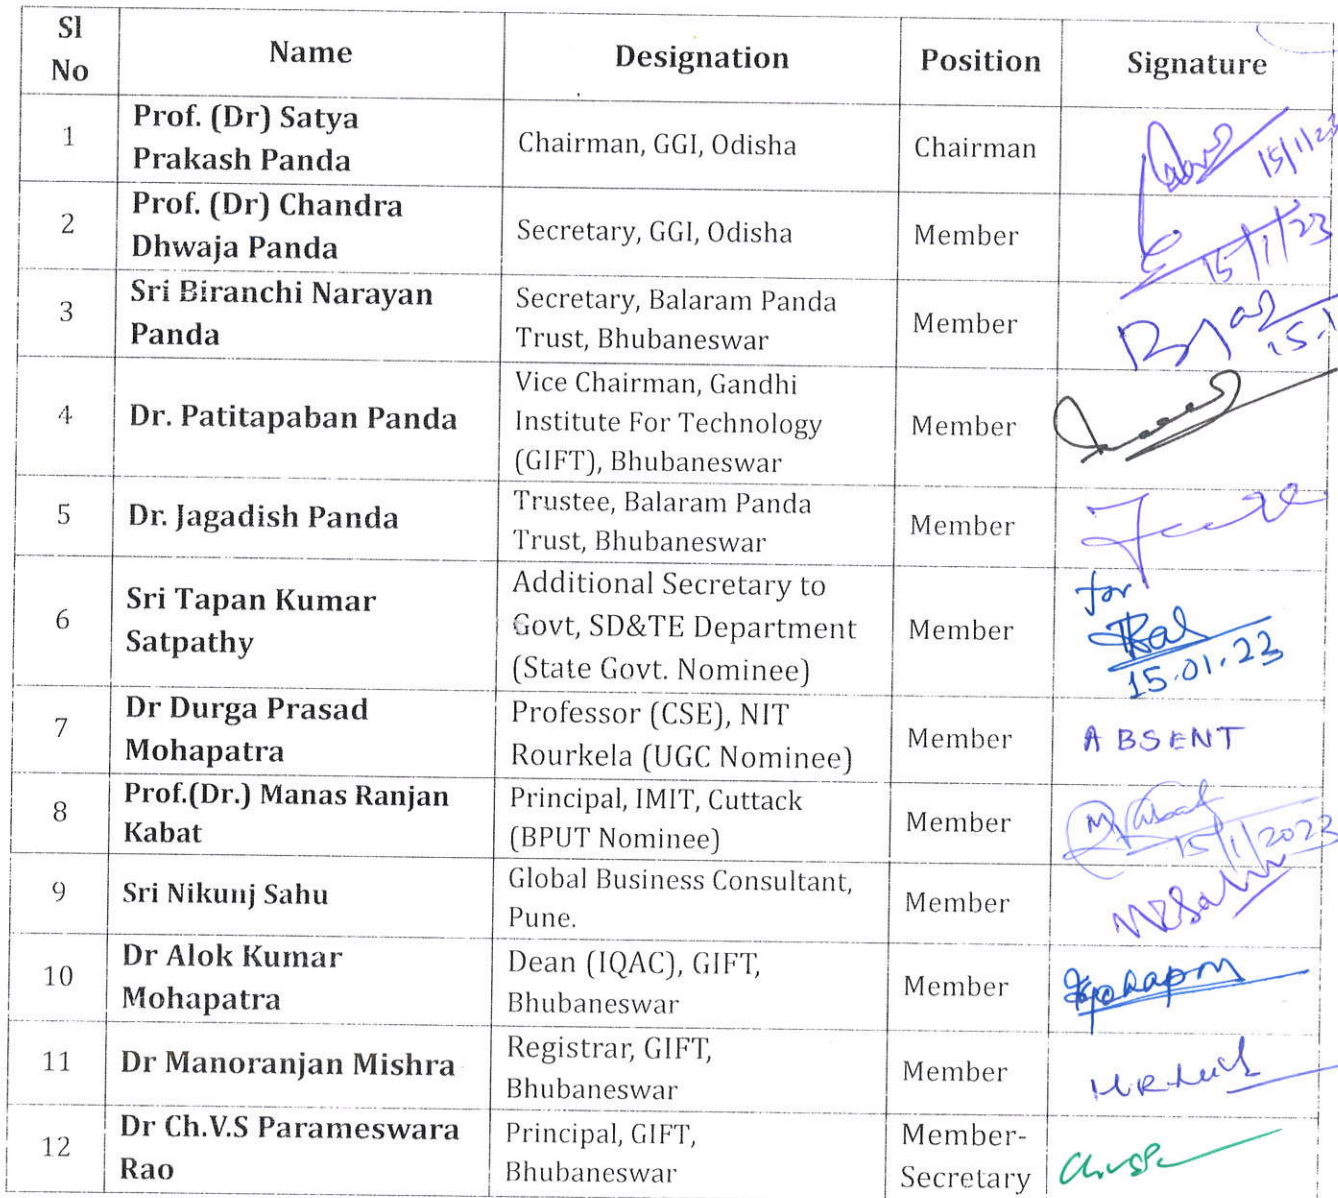 Sl No Name Designation Position Signature
1 Prof. (Dr) Satya Prakash Panda Chairman, GGI, Odisha Chairman 15/1/23
2 Prof. (Dr) Chandra Dhwaja Panda Secretary, GGI, Odisha Member 15/1/23
3 Sri Biranchi Narayan Panda Secretary, Balaram Panda Trust, Bhubaneswar Member
4 Dr. Patitapaban Panda Vice Chairman, Gandhi Institute For Technology (GIFT), Bhubaneswar Member
5 Dr. Jagadish Panda Trustee, Balaram Panda Trust, Bhubaneswar Member
6 Sri Tapan Kumar Satpathy Additional Secretary to Govt, SD&TE Department (State Govt. Nominee) Member for 15.01.23
7 Dr Durga Prasad Mohapatra Professor (CSE), NIT Rourkela (UGC Nominee) Member ABSENT
8 Prof.(Dr.) Manas Ranjan Kabat Principal, IMIT, Cuttack (BPUT Nominee) Member 15/1/2023
9 Sri Nikunj Sahu Global Business Consultant, Pune. Member
10 Dr Alok Kumar Mohapatra Dean (IQAC), GIFT, Bhubaneswar Member
11 Dr Manoranjan Mishra Registrar, GIFT, Bhubaneswar Member
12 Dr Ch.V.S Parameswara Rao Principal, GIFT, Bhubaneswar Member-Secretary